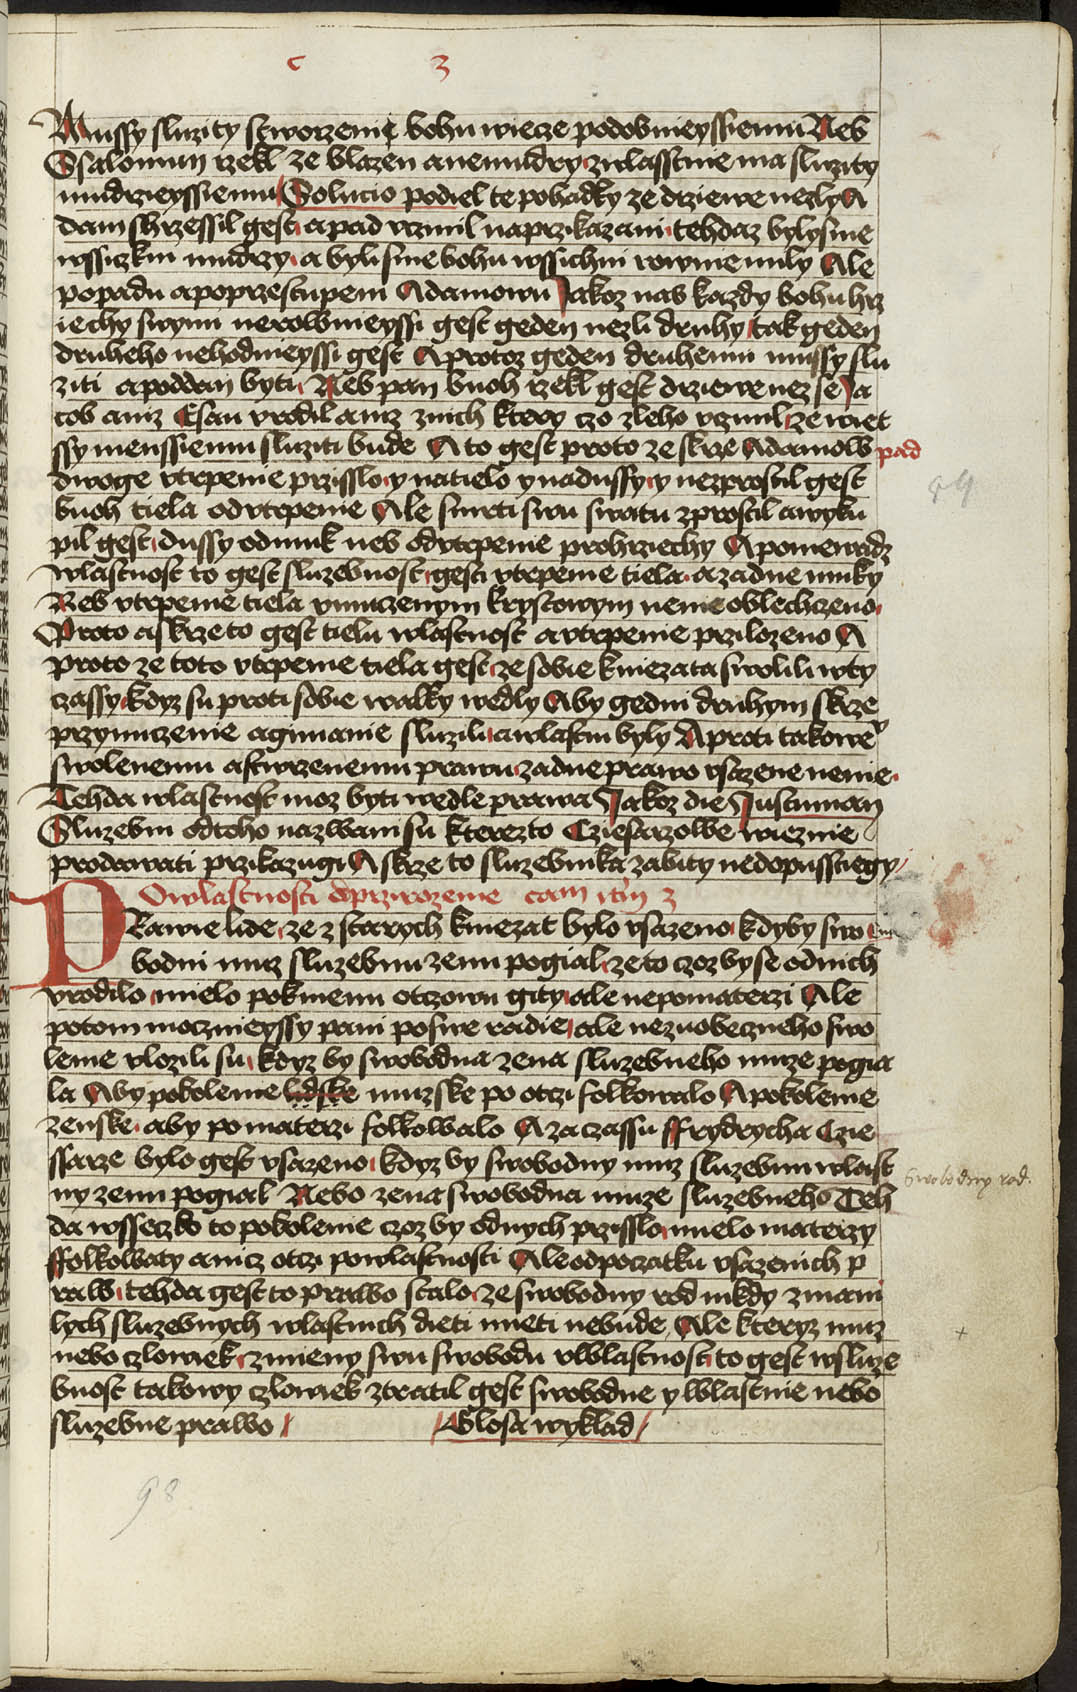 c 3
Mussy sluzity stworzenie bohu wiecze podobnieyssiemu Neb
Ssalomun rzekl ze blazen a nemudry zwlasstnie ma sluzity
mudrzieyssiemu Solucio podiel te pohadky ze drziewe nezly A
dam shrzessil gest a pad vczinil na przikazani tehdaz bylysme
wssiczkni mudrzy a byli sme bohu wssichni rownie mily Ale
po padu a po przestupeni Adamowu Jakoz nas kazdy bohu hrz
iechy swymi nerownieyssi gest geden nezli druhy tak geden
druheho nehodnieyssi gest A protoz geden druhemu mussy slu
ziti a poddan byti Neb pan buoh rzekl gest drziewe nez se Ja
cob aniz Esau vrodil aniz z nich ktery czo zleho vczinil ze wiet
ssy menssiemu sluziti bude A to gest proto ze skrze Adamow pad
dwoge vtrpenie przisslo y na tielo y na dussy y nezprostil gest
buoh tiela od vtrpenie Ale smrti swu swatu zprostil a wyku
pil gest dussy od muk neb od vtrpenie pro hrziechy A poniewadz
wlastnost to gest sluzebnost gest vtrpenie tiela a zadne muky
Neb vtrpenie tiela vmuczenym krystowym nenie oblechczeno
Proto a skrze to gest tielu wlastnost a vtrpenie przilozeno A
proto ze toto vtrpenie tiela gest ze sobie kniezata swolili w ty
czassy kdyz su proti sobie walky wedly Aby gedni druhym skrze
przynuczenie a gimanie sluzili a wlastni byly A proti takowe
swolenemu a stwrzenemu prawu zadne prawo vsazene nenie
Tehda wlastnost moz byti wedle prawa Jakoz die Justinian
Sluzebni od toho nazwani su kterezto Cziesarzowe wieznie
prodawati przikazugi A skrze to sluzebnika zabity nedopusstiegy
O wlastnosti o przirozenie cam item 3
PRawie lide ze z starych kniezat bylo vsazeno kdyby swo
bodni muz sluzebnu zenu pogial ze to czoz by se od nich
vrodilo mielo po kmenu otczowu gity ale ne po materzi Ale
potom moczneyssy pani po swe radie ale ne z uobeczneho swo
lenie vlozili su kdyz by swobodna zena sluzebneho muze pogia
la Aby pokolenie lidske muzske po otczi folkowalo A pokolenie
zenske aby po materzi folkowalo A za czassu ffrydrycha Czie
ssarze bylo gest vsazeno kdyz by swobodny muz sluzebnu wlast
ny zenu pogial Nebo zena swobodna muze sluzebneho Teh
da wsseczko to pokolenie czoz by od nych przisslo mielo materzy
ffolkowaty a nicz otczi po wlastnosti Ale od poczatku vsazenich p
raw tehda gest to prawo stalo ze swobodny rod nikdy z mani
lych sluzebnych wlastnich dieti mieti nebude Ale kteryz muz
nebo czlowiek zmieny swu swobodu v wlastnost to gest w sluze
bnost takowy czlowiek ztratil gest swobodne y wlastnie nebo
sluzebne prawo Glosa wyklad
Swobodny rod.
98